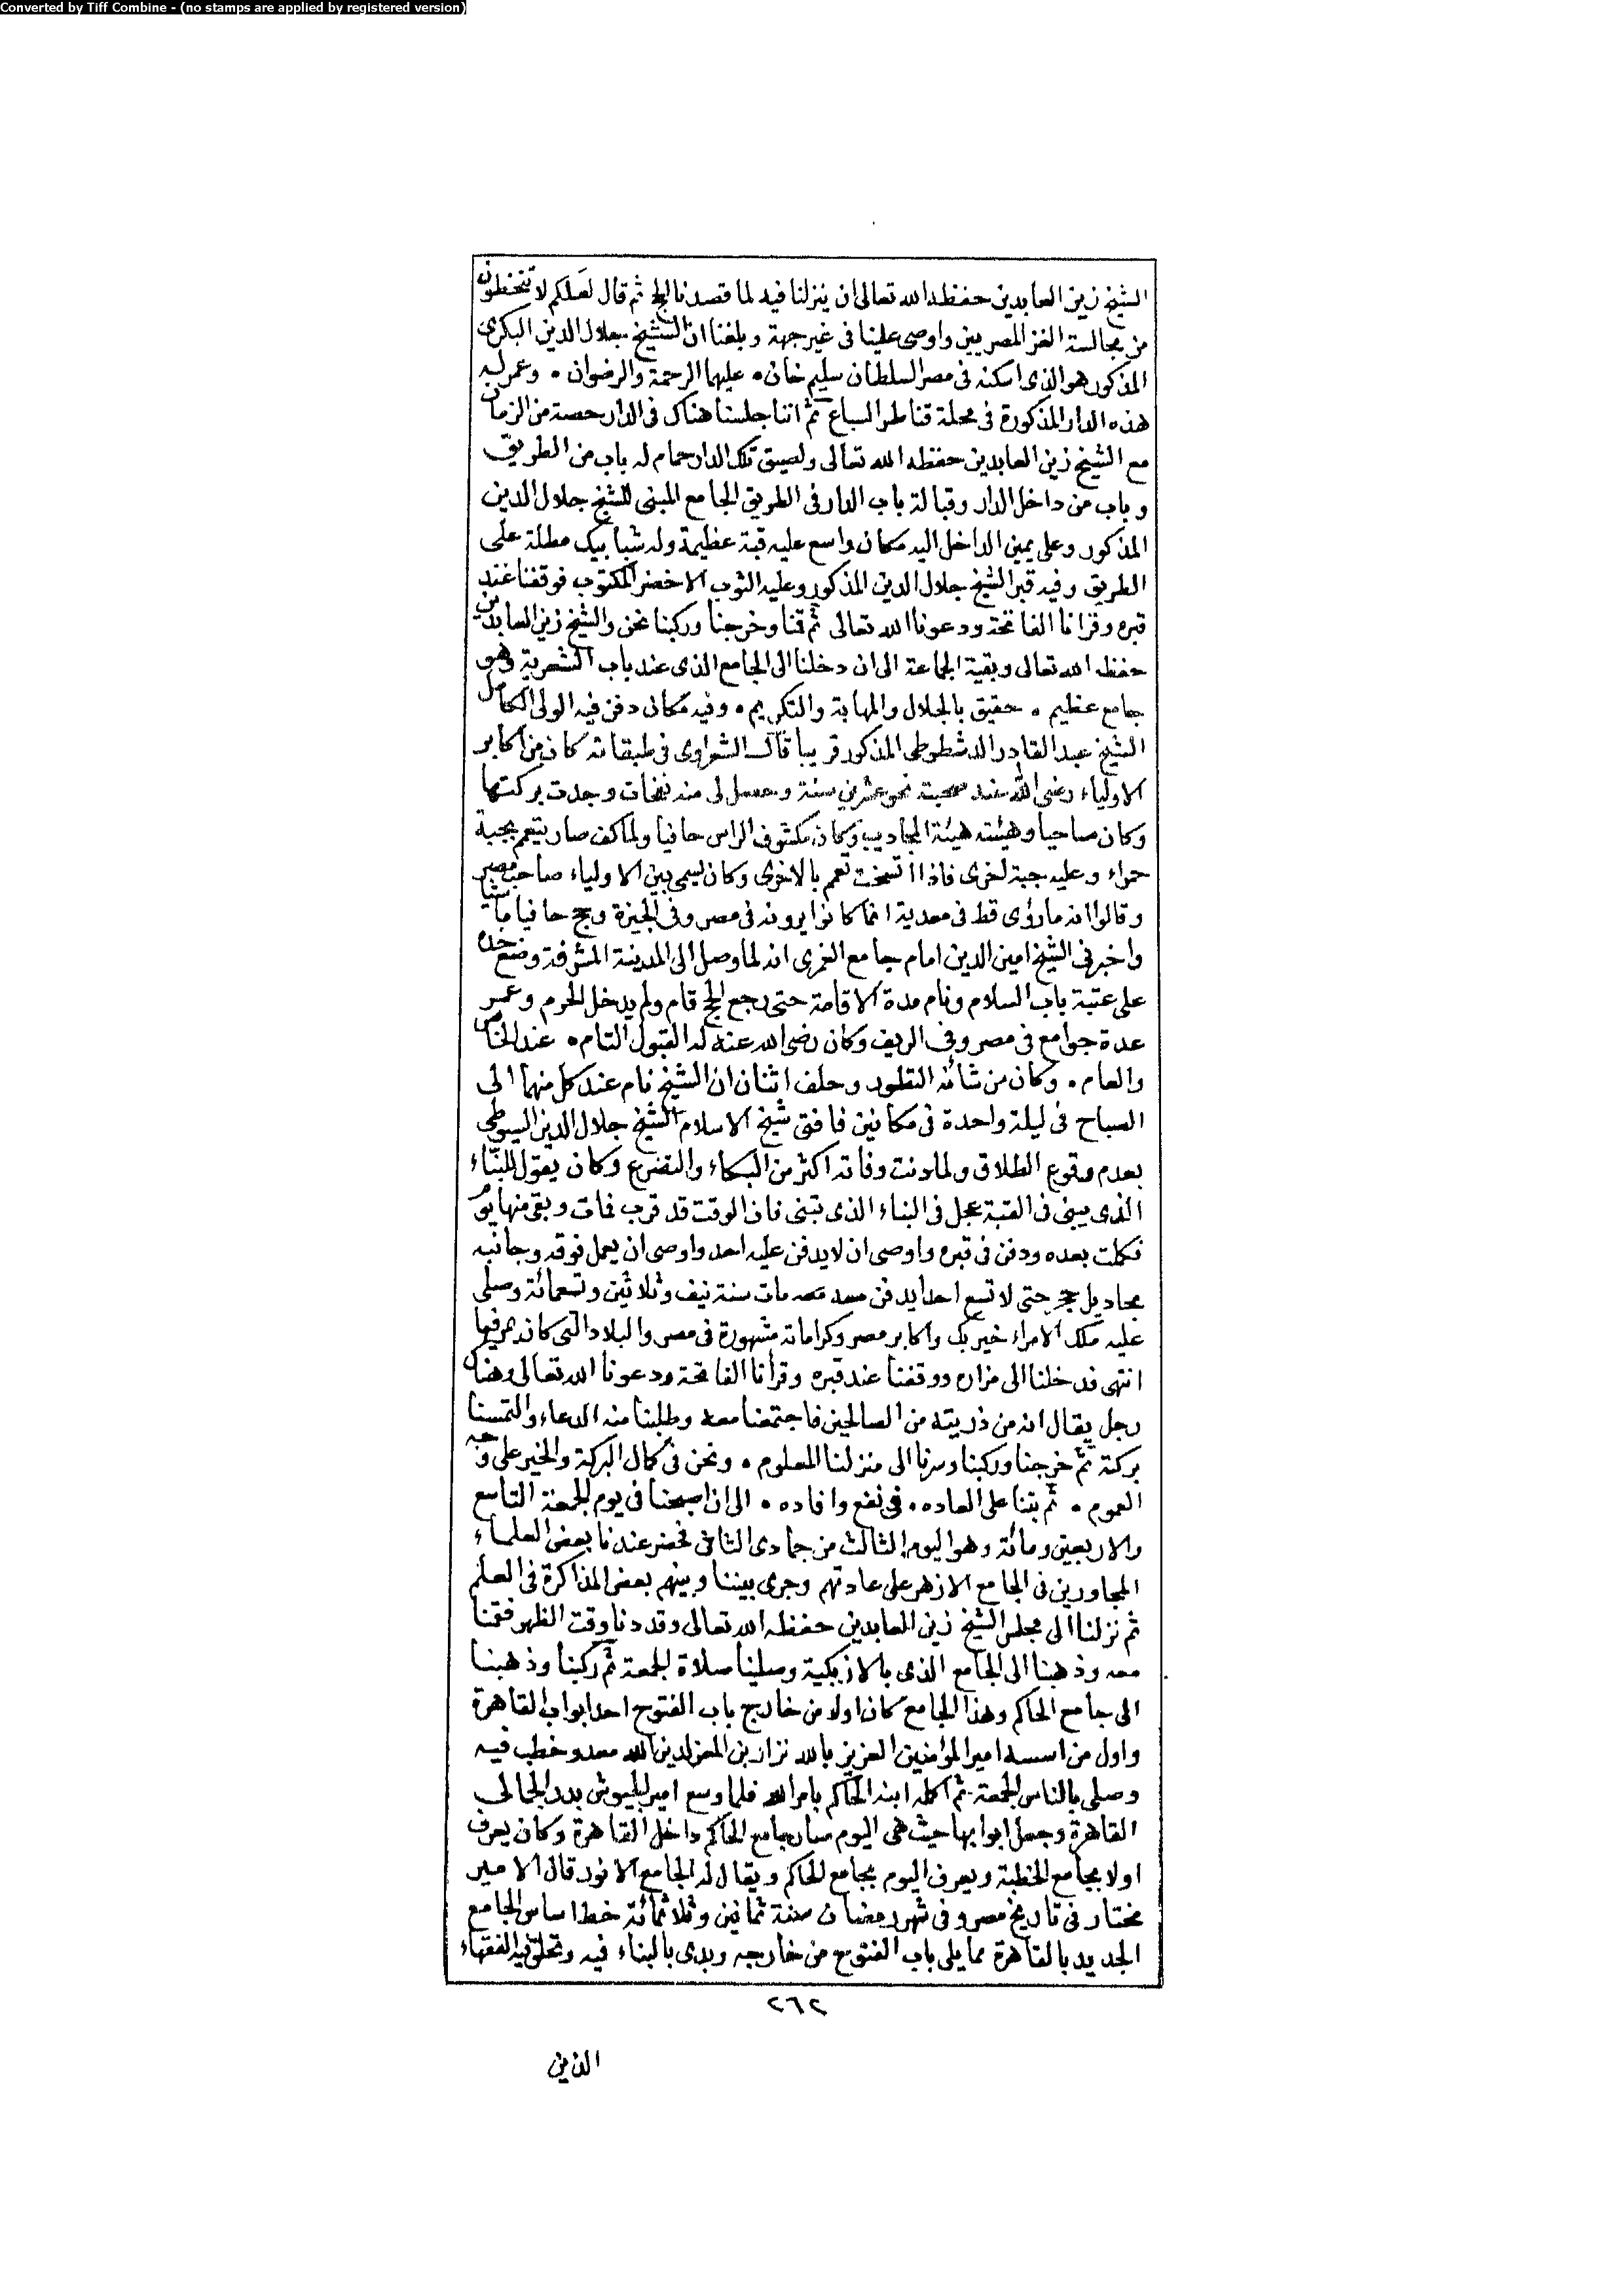 Converted by Tiff Combine - (no stamps are applied by registered version)
الشيخ زين العابدين حفظه الله تعالى ان ينزلنا فيه لما قصدنا الحج ثم قال لعلكم لا تتحفظون
من مجالسة الغز المصريين واوصى علينا فى غير جهة وبلغنا ان الشيخ جلال الدين البكرى
المذكور هو الذى اسكنه فى مصر السلطان سليم خان • عليهما الرحمة والرضوان • وعمر له
هذه الدار المذكورة فى محلة قناطر السباع ثم اننا جلسنا هناك فى الدار حصة من الزمان
مع الشيخ زين العابدين حفظه الله تعالى ولصيق تلك الدار حمام له باب من الطريق
وباب من داخل الدار وقبالة باب الدار فى الطريق الجامع المبنى للشيخ جلال الدين
المذكور وعلى يمين الداخل اليه مكان واسع عليه قبة عظيمة وله شبابيك مطلة على
الطريق وفيه قبر الشيخ جلال الدين المذكور وعليه الثوب الاخضر المكتوب فوقفنا عند
قبره وقرانا الفاتحة ودعونا الله تعالى ثم قنا وخرجنا وركبنا نحن والشيخ زين العابدين
حفظه الله تعالى وبقية الجماعة الى ان دخلنا الى الجامع الذى عند باب الشعرية وهو
جامع عظيم • حقيق بالجلال والمهابة والتكريم • وفيه مكان دفن فيه الولى الكامل
الشيخ عبد القادر الدشطوطى المذكور قريبا قال الشعراوى فى طبقاته كان من اكابر
الاولياء رضى الله عنه صحبته نحو عشرين سنة وحصل لى منه نفحات وجدت بركتها
وكان صاحيا وهيئته هيئة المجاذيب وكان مكشوف الراس حافيا ولما كف صار يتعمم بجبة
حمراء وعليه جبة اخرى فاذا اتسخت تعمم بالاخرى وكان يسمى بين الاولياء صاحب مصر
وقالوا انه ما رؤى قط فى معدية انما كانوا يرونه فى مصر وفى الجيزة وحج حافيا ماشيا
واخبرنى الشيخ امين الدين امام جامع الغمرى انه لما وصل الى المدينة المشرفة وضع خده
على عتبة باب السلام ونام مدة الاقامة حتى رجع الحج قام ولم يدخل الحرم وعمر
عدة جوامع فى مصر وفى الريف وكان رضى الله عنه له القبول التام • عند الخاص
والعام • وكان من شانه التطور وحلف اثنان ان الشيخ نام عند كل منهما الى
الصباح فى ليلة واحدة فى مكانين فافتى شيخ الاسلام الشيخ جلال الدين السيوطى
بعدم وقوع الطلاق ولما دنت وفاته اكثر من البكاء والتضرع وكان يقول للبناء
الذى يبنى فى القبة عجل فى البناء الذى تبنى فان الوقت قد قرب فمات وبقى منها يوم
فكملت بعده ودفن فى قبره واوصى ان لا يدفن عليه احد واوصى ان يعمل فوقه وجانبه
مجاديل حجر حتى لا تسع احدا يدفن معه مات سنة نيف وثلاثين وتسعمائة وصلى
عليه ملك الامراء خير بك واكابر مصر وكراماته مشهورة فى مصر والبلاد التى كان يمر فيها
انتهى فدخلنا الى مزاره ووقفنا عند قبره وقرانا الفاتحة ودعونا الله تعالى وهناك
رجل يقال انه من ذريته من الصالحين فاجتمعنا معه وطلبنا منه الدعاء والتمسنا
بركته ثم خرجنا وركبنا وسرنا الى منزلنا المعلوم • ونحن فى كمال البركة والخير على وجه
العموم • ثم بتنا على العاده • فى نفع وافاده • الى ان اصبحنا فى يوم الجمعة التاسع
والاربعين ومائة وهو اليوم الثالث من جمادى الثانى فحضر عندنا بعض العلماء
المجاورين فى الجامع الازهر على عادتهم وجرى بيننا وبينهم بعض المذاكرة فى العلم
ثم نزلنا الى مجلس الشيخ زين العابدين حفظه الله تعالى وقد دنا وقت الظهر فقمنا
معه وذهبنا الى الجامع الذى بالازبكية وصلينا صلاة الجمعة ثم ركبنا وذهبنا
الى جامع الحاكم وهذا الجامع كان اولا من خارج باب الفتوح احد ابواب القاهرة
واول من اسسه امير المؤمنين العزيز بالله نزار بن المعز لدين الله معد وخطب فيه
وصلى بالناس الجمعة ثم اكمله ابنه الحاكم بامر الله فلما وسع امير الجيوش بدر الجمالى
القاهرة وجعل ابوابها حيث هى اليوم صار جامع الحاكم داخل القاهرة وكان يعرف
اولا بجامع الخطبة ويعرف اليوم بجامع الحاكم ويقال له الجامع الانور قال الامير
مختار فى تاريخ مصر وفى شهر رمضان سنة ثمانين وثلاثمائة خط اساس الجامع
الجديد بالقاهرة مما يلى باب الفتوح من خارجه وبدى بالبناء فيه وتحلق فيه الفقهاء
٢٦٢
الذين